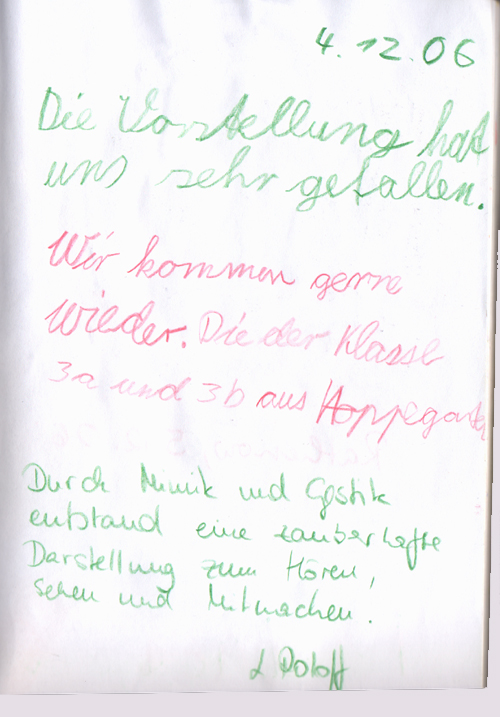 4.12.06
Die Vorstellung hat
uns sehr gefallen.
Wir kommen gerne
wieder. Die der Klasse
3a und 3b aus Hoppegarten
Durch Mimik und Gestik
entstand eine zauberhafte
Darstellung zum Hören,
sehen und Mitmachen.